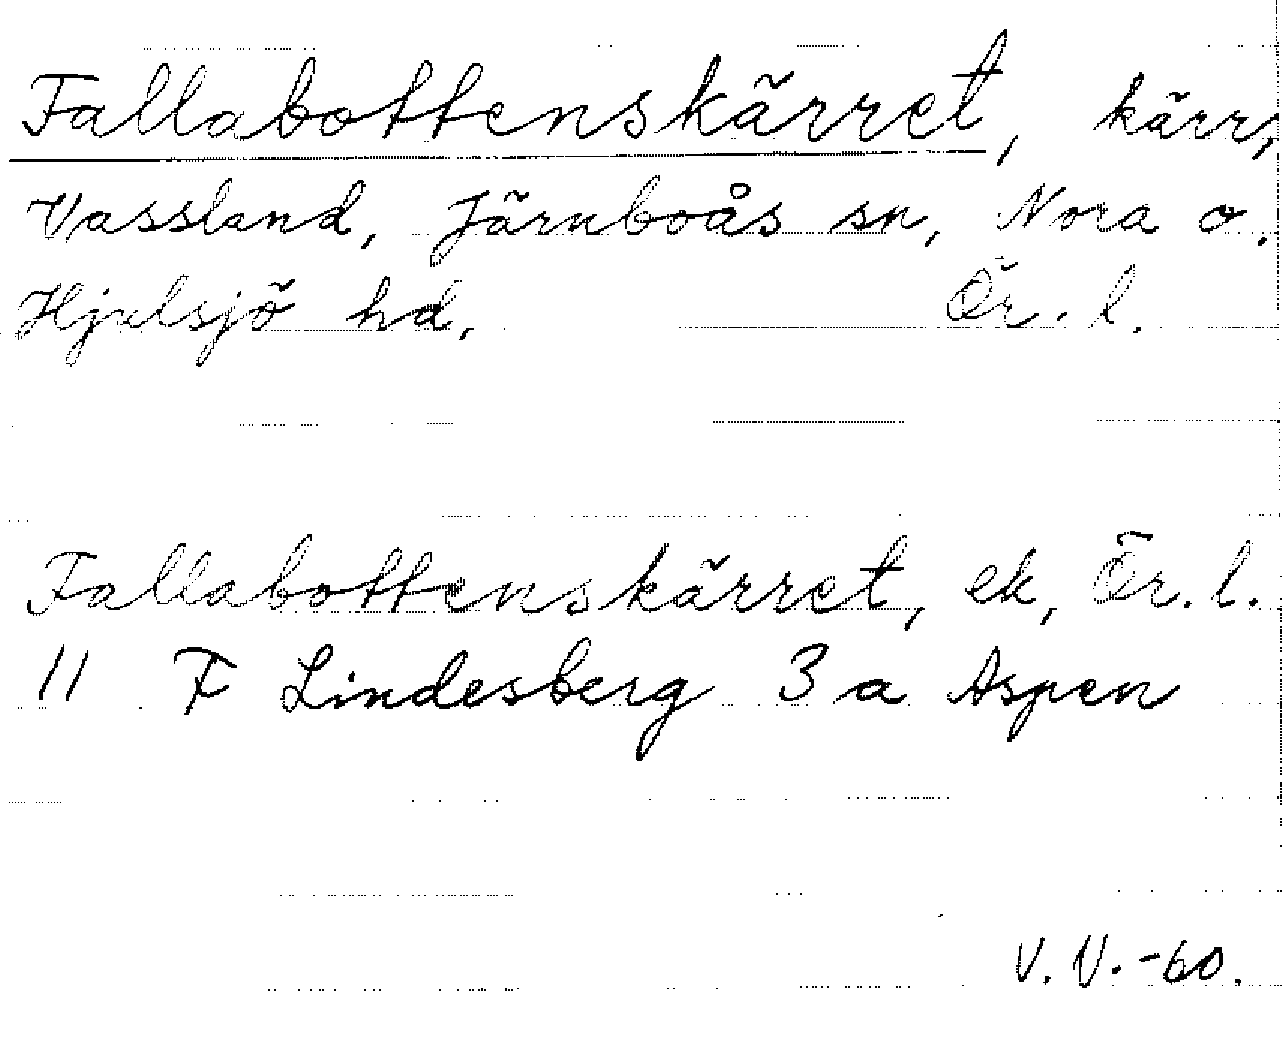 Fallabottenskärret, kärr,
Vassland, Järnboås sn, Nora o.
Hjulsjö hd. Ör. l.
Fallabottenskärret, ek, Ör. l.
11 F Lindesberg 3 a Aspen
V. V. -60.